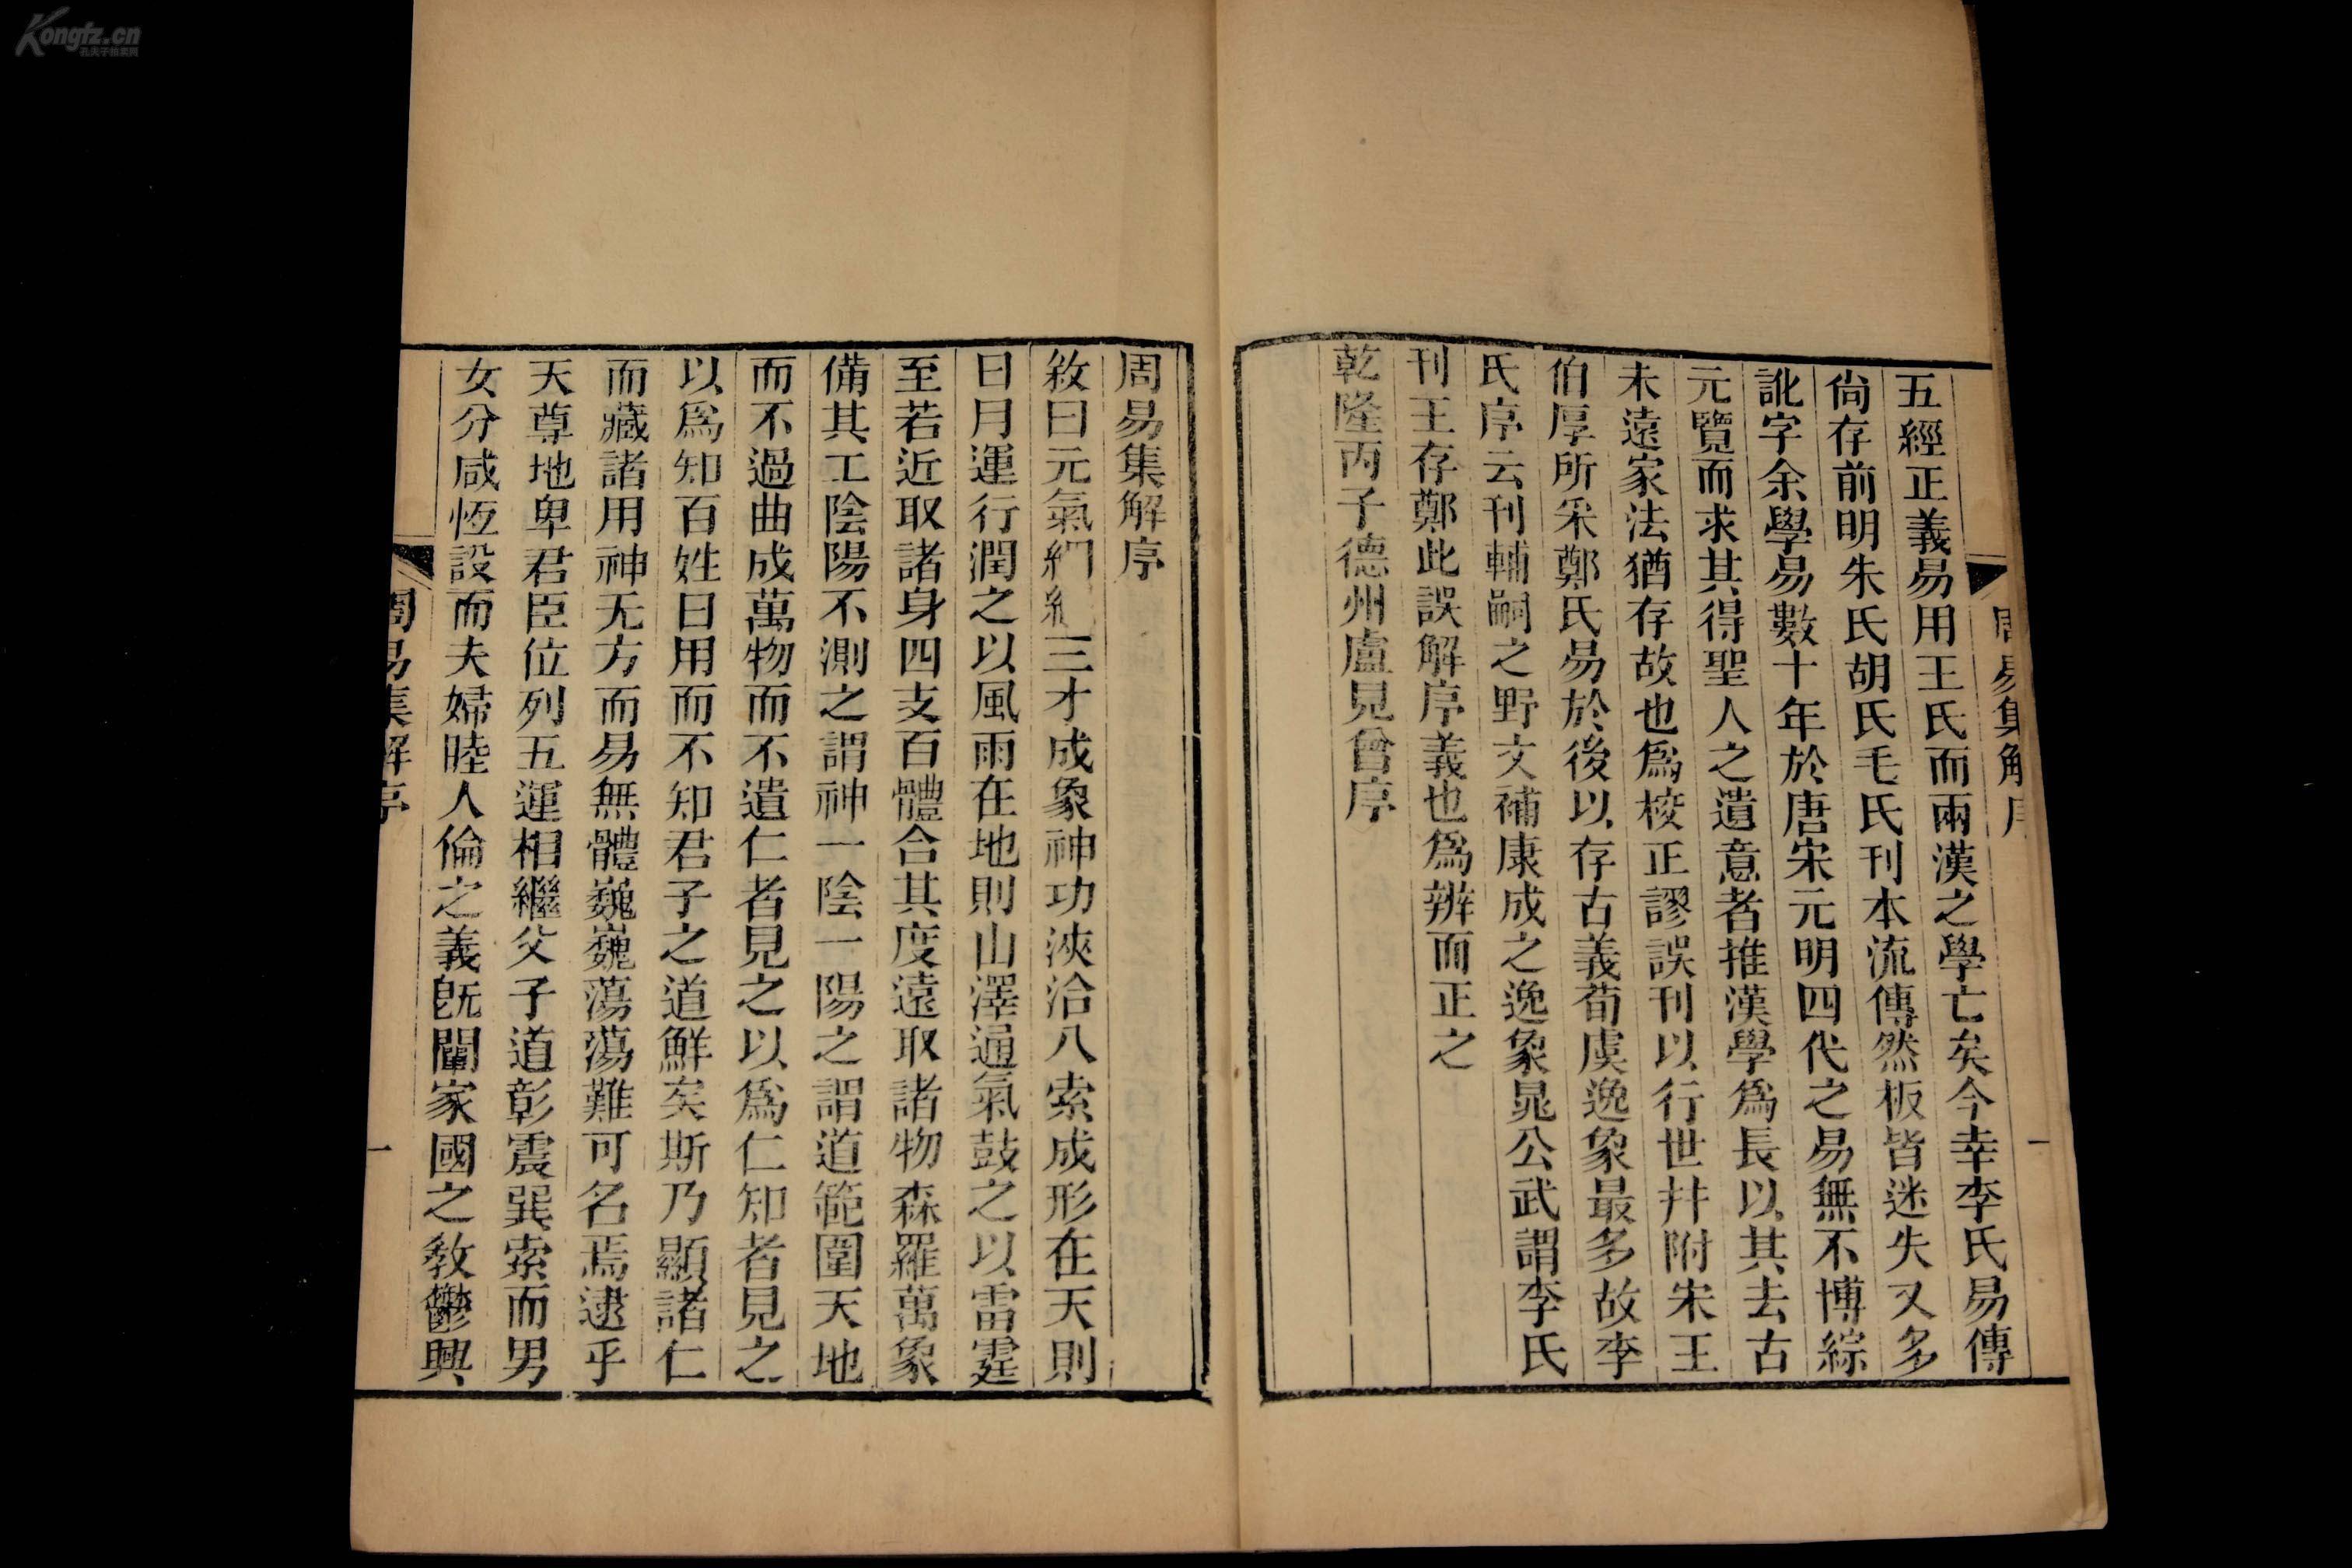 五經正義易用王氏而兩漢之學亡矣今幸李氏易傳
尙存前明朱氏胡氏毛氏刊本流傳然板皆迷失又多
訛字余學易數十年於唐宋元明四代之易無不博綜
元覽而求其得聖人之遺意者推漢學爲長以其去古
未遠家法猶存故也爲校正謬誤刊以行世幷附宋王
伯厚所采鄭氏易於後以存古義荀虞逸象最多故李
氏序云刊輔嗣之野文補康成之逸象晁公武謂李氏
刊王存鄭此誤解序義也爲辨而正之
乾隆丙子德州盧見曾序
周易集解序
一
周易集解序
敘曰元氣絪三才成象神功浹洽八索成形在天則
日月運行潤之以風雨在地則山澤通氣鼓之以雷霆
至若近取諸身四支百體合其度遠取諸物森羅萬象
備其工陰陽不測之謂神一陰一陽之謂道範圍天地
而不過曲成萬物而不遺仁者見之以爲仁知者見之
以爲知百姓日用而不知君子之道鮮矣斯乃顯諸仁
而藏諸用神无方而易無體巍巍蕩蕩難可名焉逮乎
天尊地卑君臣位列五運相繼父子道彰震巽索而男
女分咸恆設而夫婦睦人倫之義旣闡家國之敎鬱興
周易集解序
一
Kongfz.cn